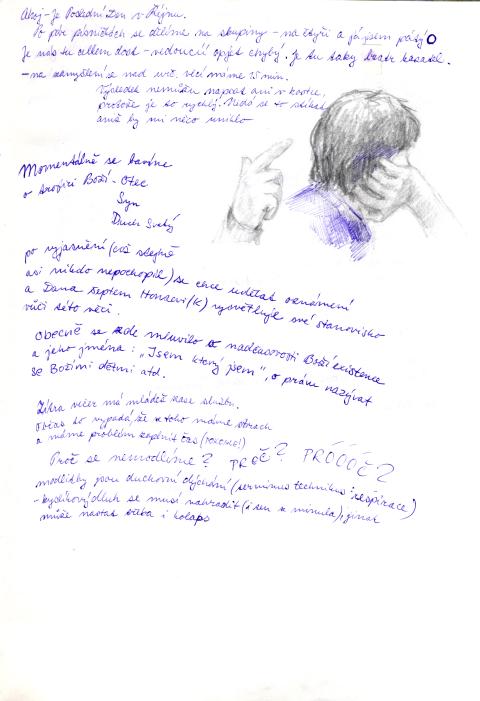 Ahoj - Je Poslední Den v Říjnu.
Po pár písničkách se dělíme na skupiny - na čtyři a já jsem pátý
Je nás tu celkem dost - vedoucí opjet chybý. Je tu taky bratr kazatel.
- na zamyšlení se nad urč. věcí máme 15 min.
Výsledek nemůžu napsat ani v kostce,
protože je to rychlý. Nedá se to stíhat
aniž by mi něco uniklo
Momentálně se bavíme
o trojici Boží - Otec
Syn
Duch Svatý
po vyjasnění (což stejně
asi nikdo nepochopil) se chce udělat oznámení
a Dana šeptem Honzovi (K) vysvětluje své stanovisko
vůči této věci.
obecně se zde mluvilo o nadčasovosti Boží existence
a jeho jména: "Jsem který jsem", o právu nazývat
se Božími dětmi atd.
Zítra večer má mládež zase službu.
občas to vypadá, že z toho máme strach
a máme problém zaplnit čas
Proč se nemodlíme? PROČ? PRÓÓÓČ?
modlitby jsou duchovní dýchání (terminus technikus: respirace)
- kyslíkový dluh se musí nahradit (i ten z minula), jinak
může nastat křeba i kolaps